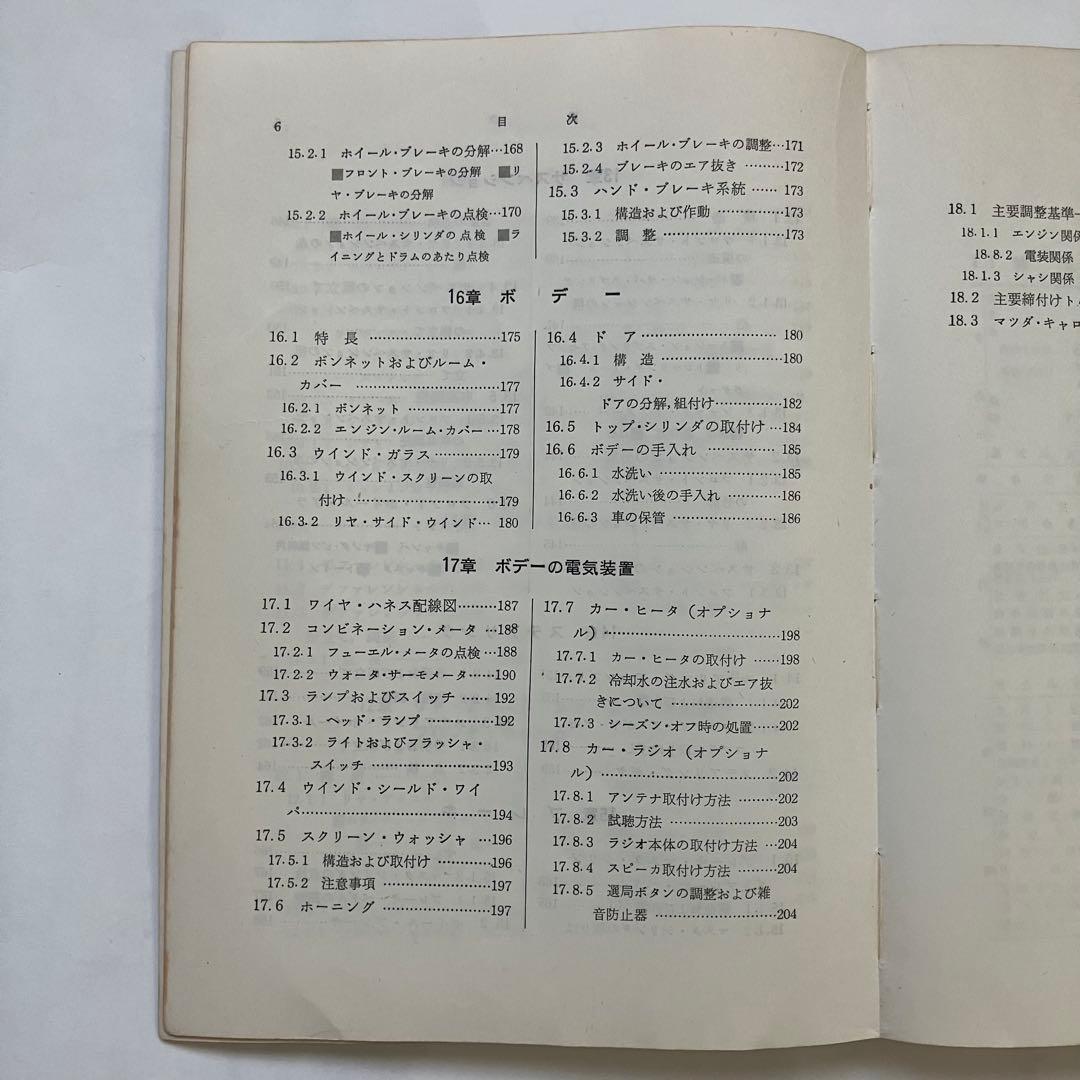 6
目 次
15.2.1 ホイール・ブレーキの分解…168
■フロント・ブレーキの分解 ■リ
ヤ・ブレーキの分解
15.2.2 ホイール・ブレーキの点検…170
■ホイール・シリンダの点検 ■ラ
イニングとドラムのあたり点検
15.2.3 ホイール・ブレーキの調整…171
15.2.4 ブレーキのエア抜き………172
15.3 ハンド・ブレーキ系統……173
15.3.1 構造および作動……………173
15.3.2 調 整………………………173
16章 ボ デ ー
16.1 特 長……………………………175
16.2 ボンネットおよびルーム・
カバー ……………………………177
16.2.1 ボンネット…………………177
16.2.2 エンジン・ルーム・カバー…178
16.3 ウインド・ガラス………………179
16.3.1 ウインド・スクリーンの取
付け ……………………………179
16.3.2 リヤ・サイド・ウインド…180
16.4 ド ア……………………………180
16.4.1 構 造………………………180
16.4.2 サイド・
ドアの分解,組付け……………182
16.5 トップ・シリンダの取付け…184
16.6 ボデーの手入れ……………185
16.6.1 水洗い………………………185
16.6.2 水洗い後の手入れ…………186
16.6.3 車の保管……………………186
17章 ボデーの電気装置
17.1 ワイヤ・ハネス配線図………187
17.2 コンビネーション・メータ…188
17.2.1 フューエル・メータの点検…188
17.2.2 ウォータ・サーモメータ……190
17.3 ランプおよびスイッチ……192
17.3.1 ヘッド・ランプ……………192
17.3.2 ライトおよびフラッシャ・
スイッチ………………………193
17.4 ウインド・シールド・ワイ
パ……………………………………194
17.5 スクリーン・ウォッシャ…196
17.5.1 構造および取付け…………196
17.5.2 注意事項……………………197
17.6 ホーニング……………………197
17.7 カー・ヒータ(オプショナ
ル)…………………………………198
17.7.1 カー・ヒータの取付け……198
17.7.2 冷却水の注水およびエア抜
きについて……………………202
17.7.3 シーズン・オフ時の処置……202
17.8 カー・ラジオ(オプショナ
ル)…………………………………202
17.8.1 アンテナ取付け方法………202
17.8.2 試聴方法……………………203
17.8.3 ラジオ本体の取付け方法…204
17.8.4 スピーカ取付け方法………204
17.8.5 選局ボタンの調整および雑
音防止器………………………204
18.1 主要調整基準
18.1.1 エンジン関係
18.8.2 電装関係
18.1.3 シャシ関係
18.2 主要締付けト
18.3 マツダ・キャロ